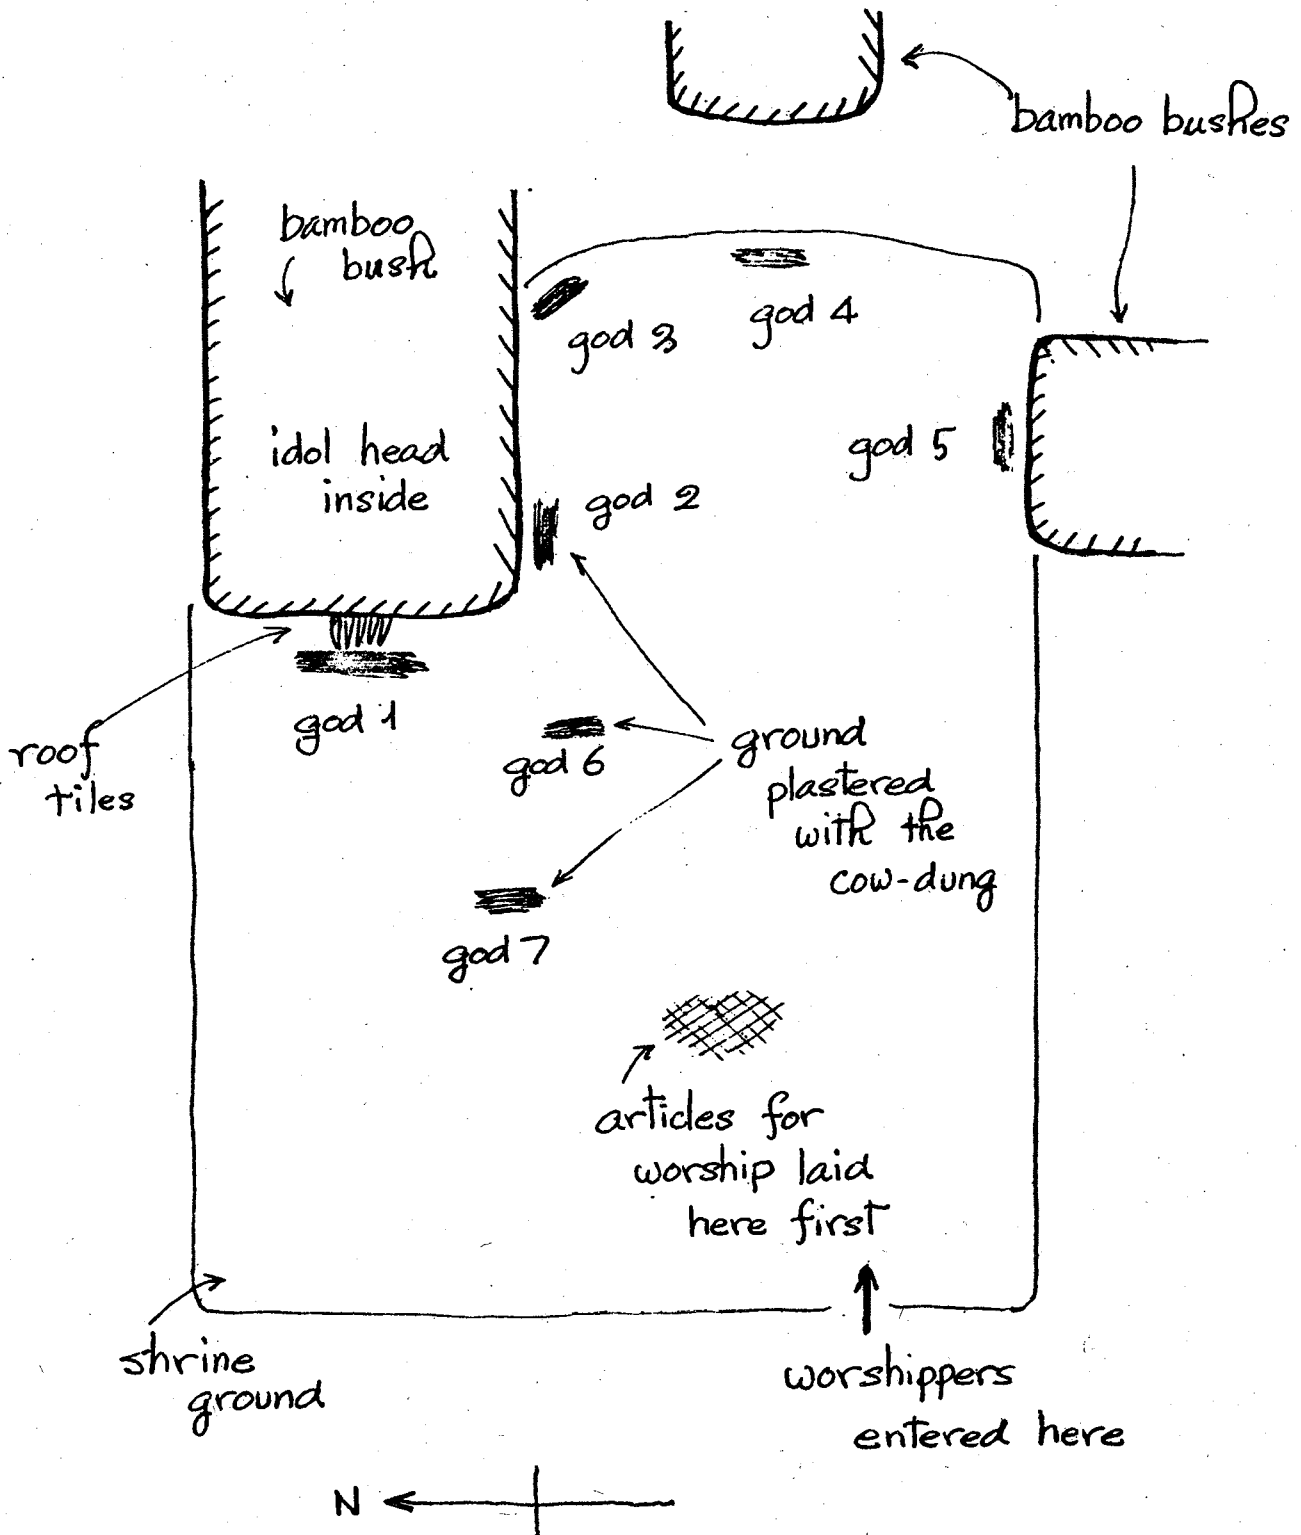 bamboo bushes
bamboo
bush
god 3
god 4
idol head
inside
god 5
god 2
god 1
god 6
roof
tiles
ground
plastered
with the
cow-dung
god 7
articles for
worship laid
here first
shrine
ground
worshippers
entered here
N